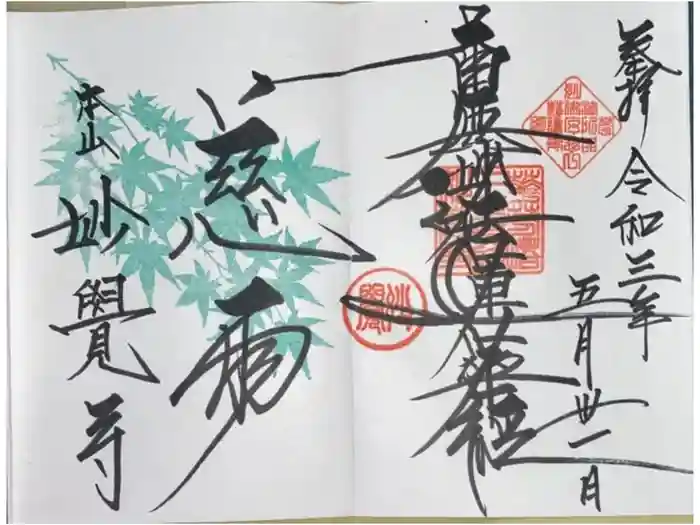 奉拝 令和三年
五月廿一日
南無妙法蓮華經
慈雨
本山 妙覺寺